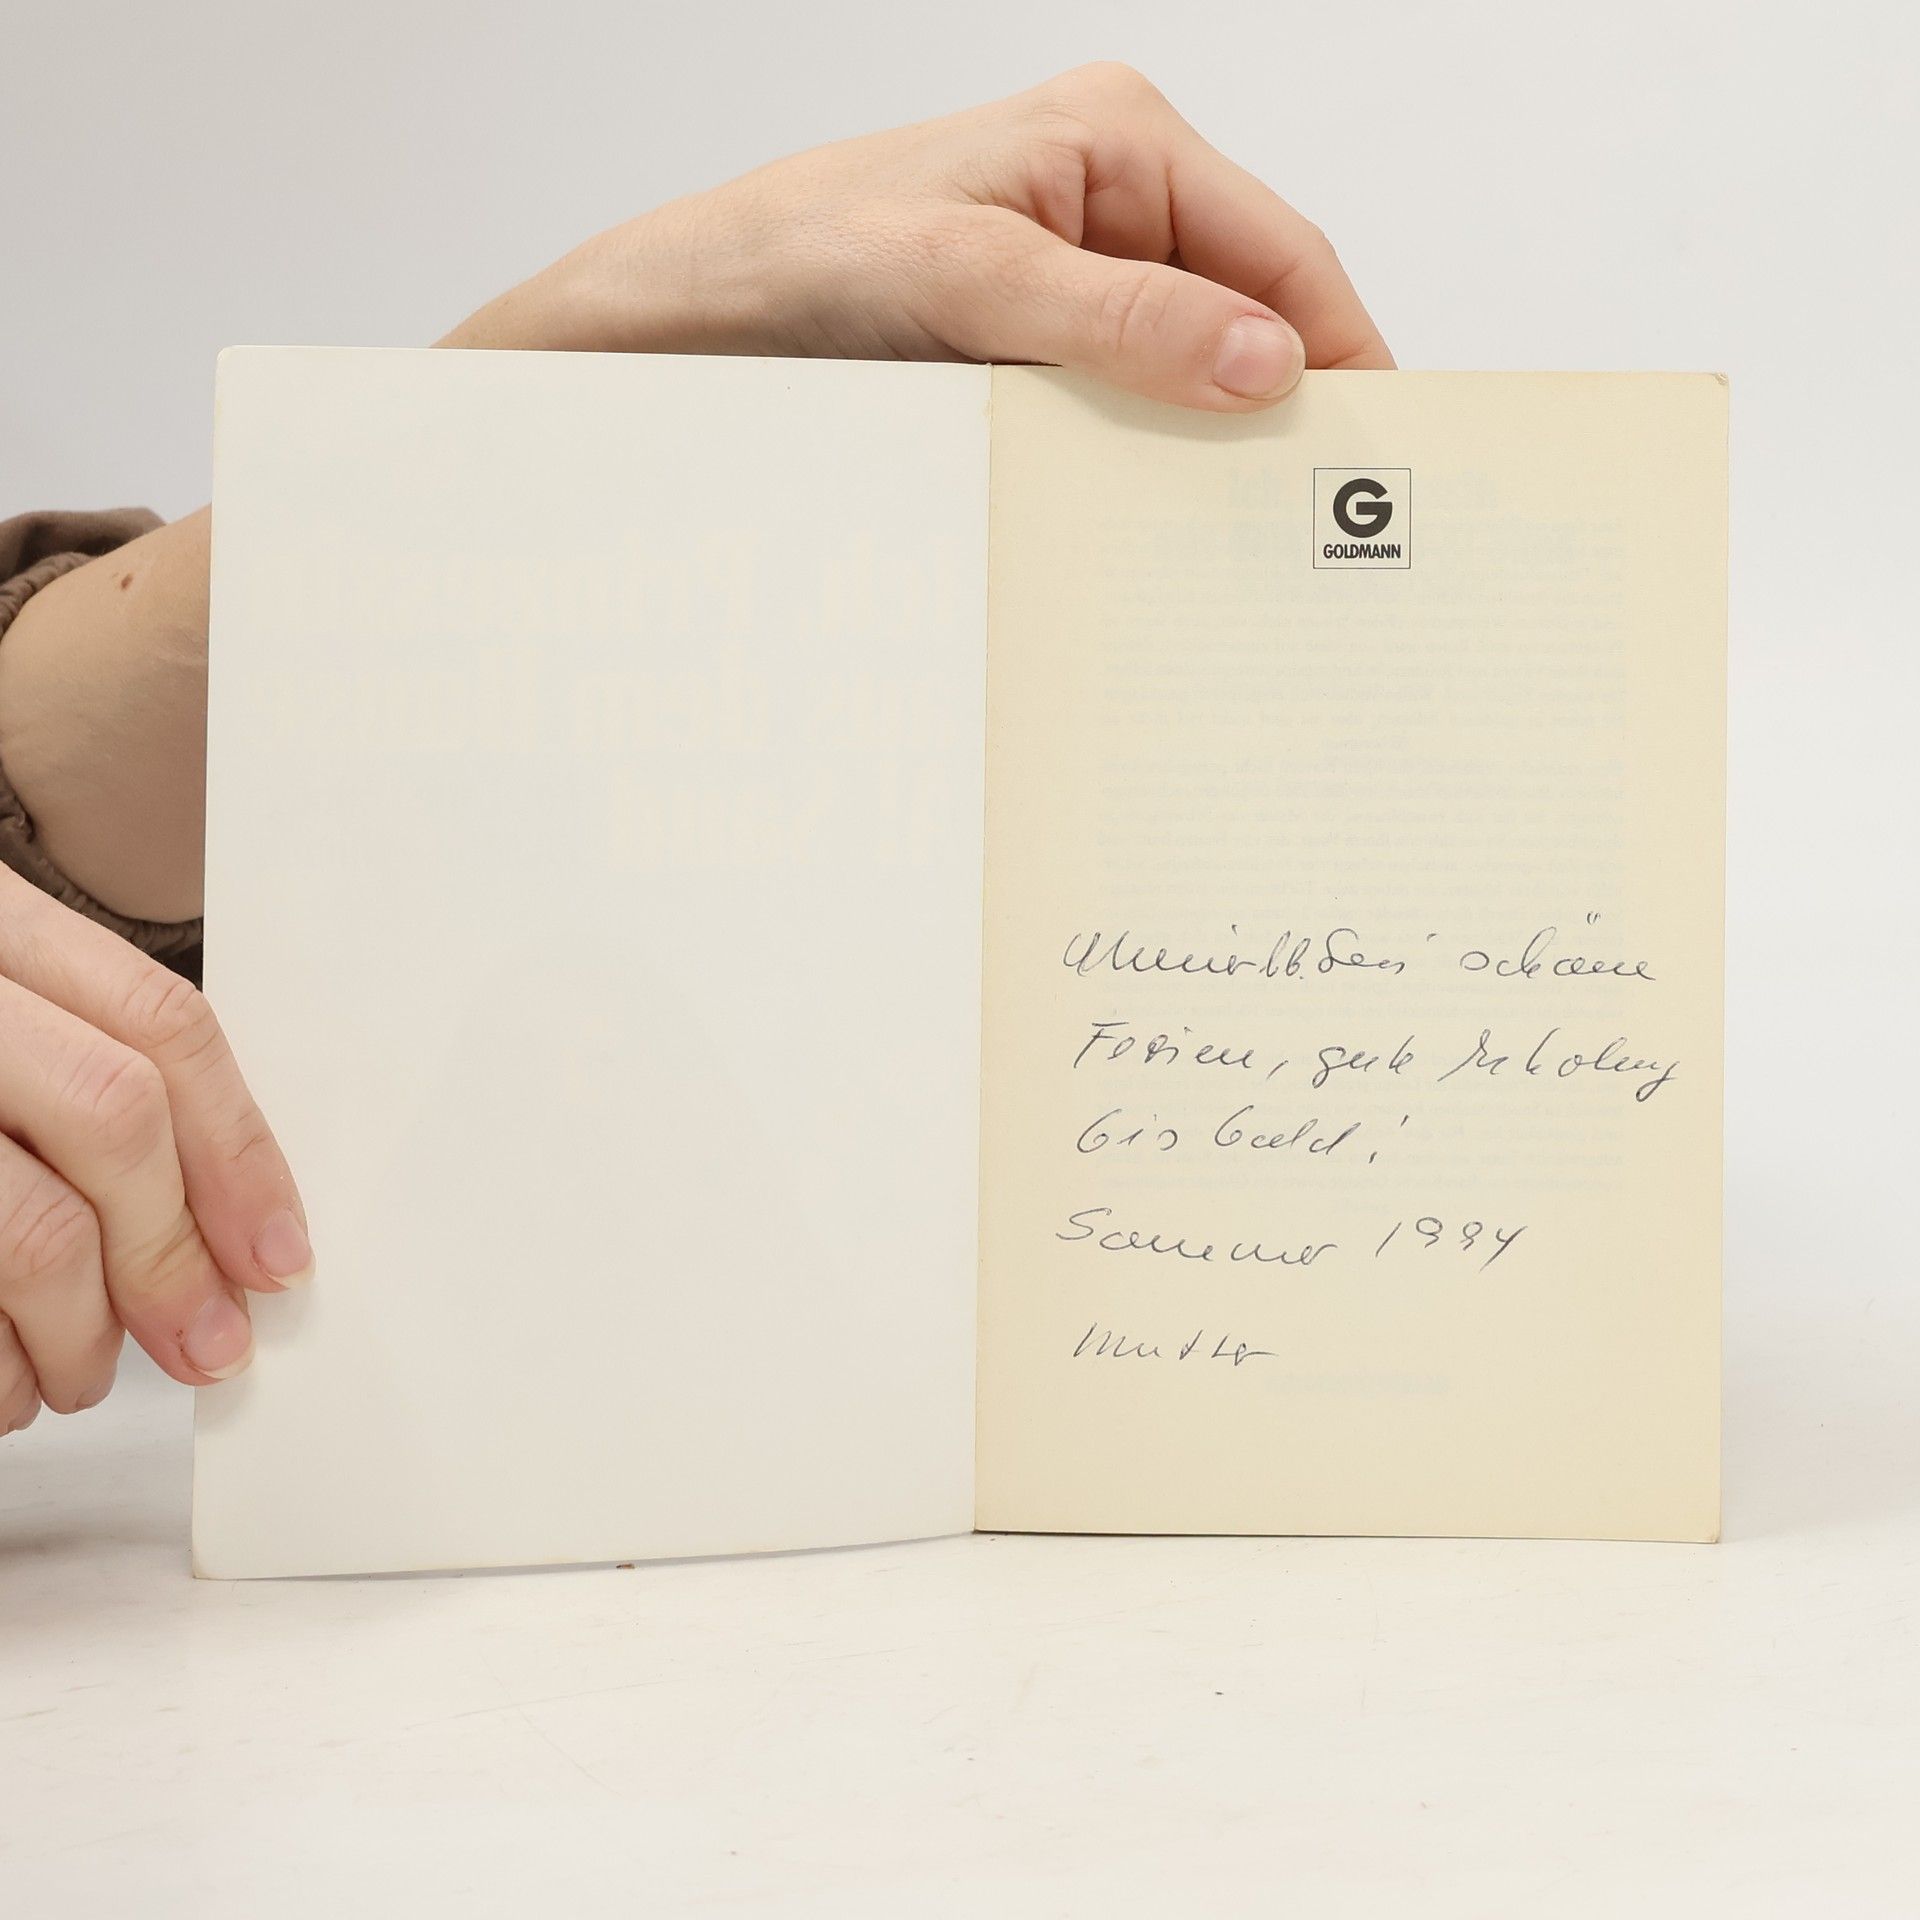 G
GOLDMANN
schöne
Ferien, gute Erholung
bis bald!
Sommer 1994
Mutter